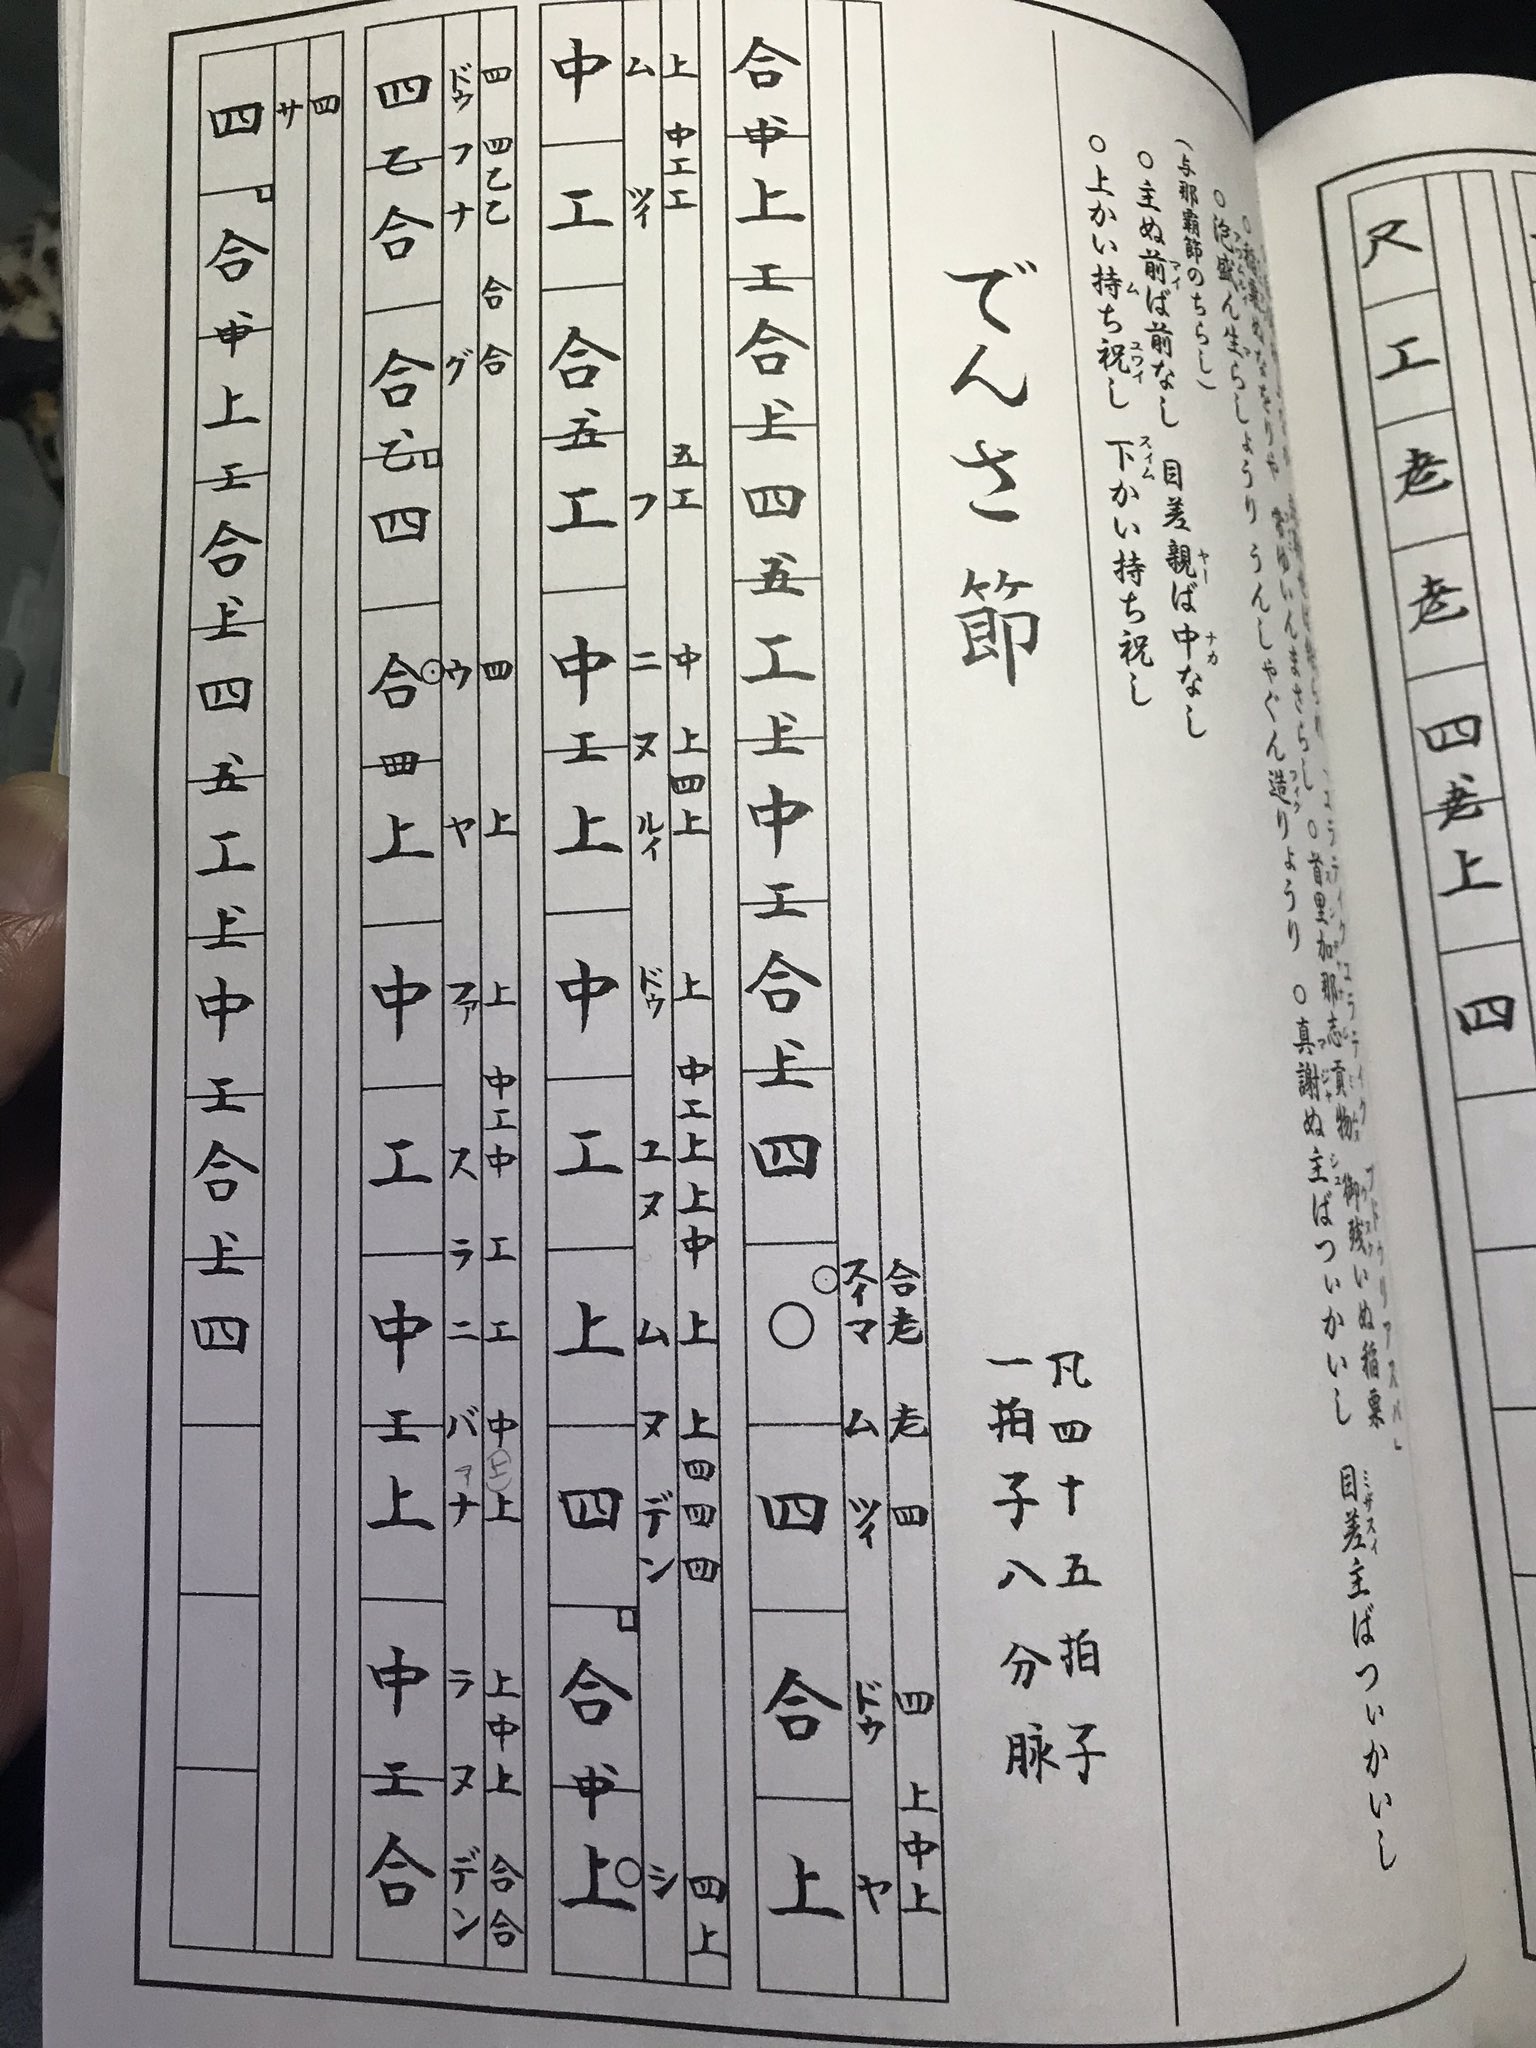 尺工老老四老上四
○真謝ぬ主ばついかいし 目差主ばついかいし
○泡盛ん生らしょうり うんしゃぐん造りょうり
(与那覇節のちらし)
○主ぬ前ば前なし 目差親ば中なし
○上かい持ち祝し 下かい持ち祝し
でんさ節
凡四十五拍子
一拍子八分脉
合老老四四上中上
スィマムツィドゥヤ
合中上工合上四五工上中工合上四○四合上
上中工工五工中上四上上中工上上中上上四四四四上
ムツィフニヌルイドゥユヌムヌデンシ
中工合五工中工上中工上四合中上
四四乙乙合合四上上中工中工工中上上上中上合合
ドゥフナグウヤファスラニバァナラヌデン
四乙合合乙四合四上中工中工上中工合
四
サ
四合中上工合上四五工上中工合上四